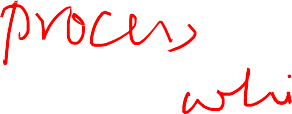 process
whi